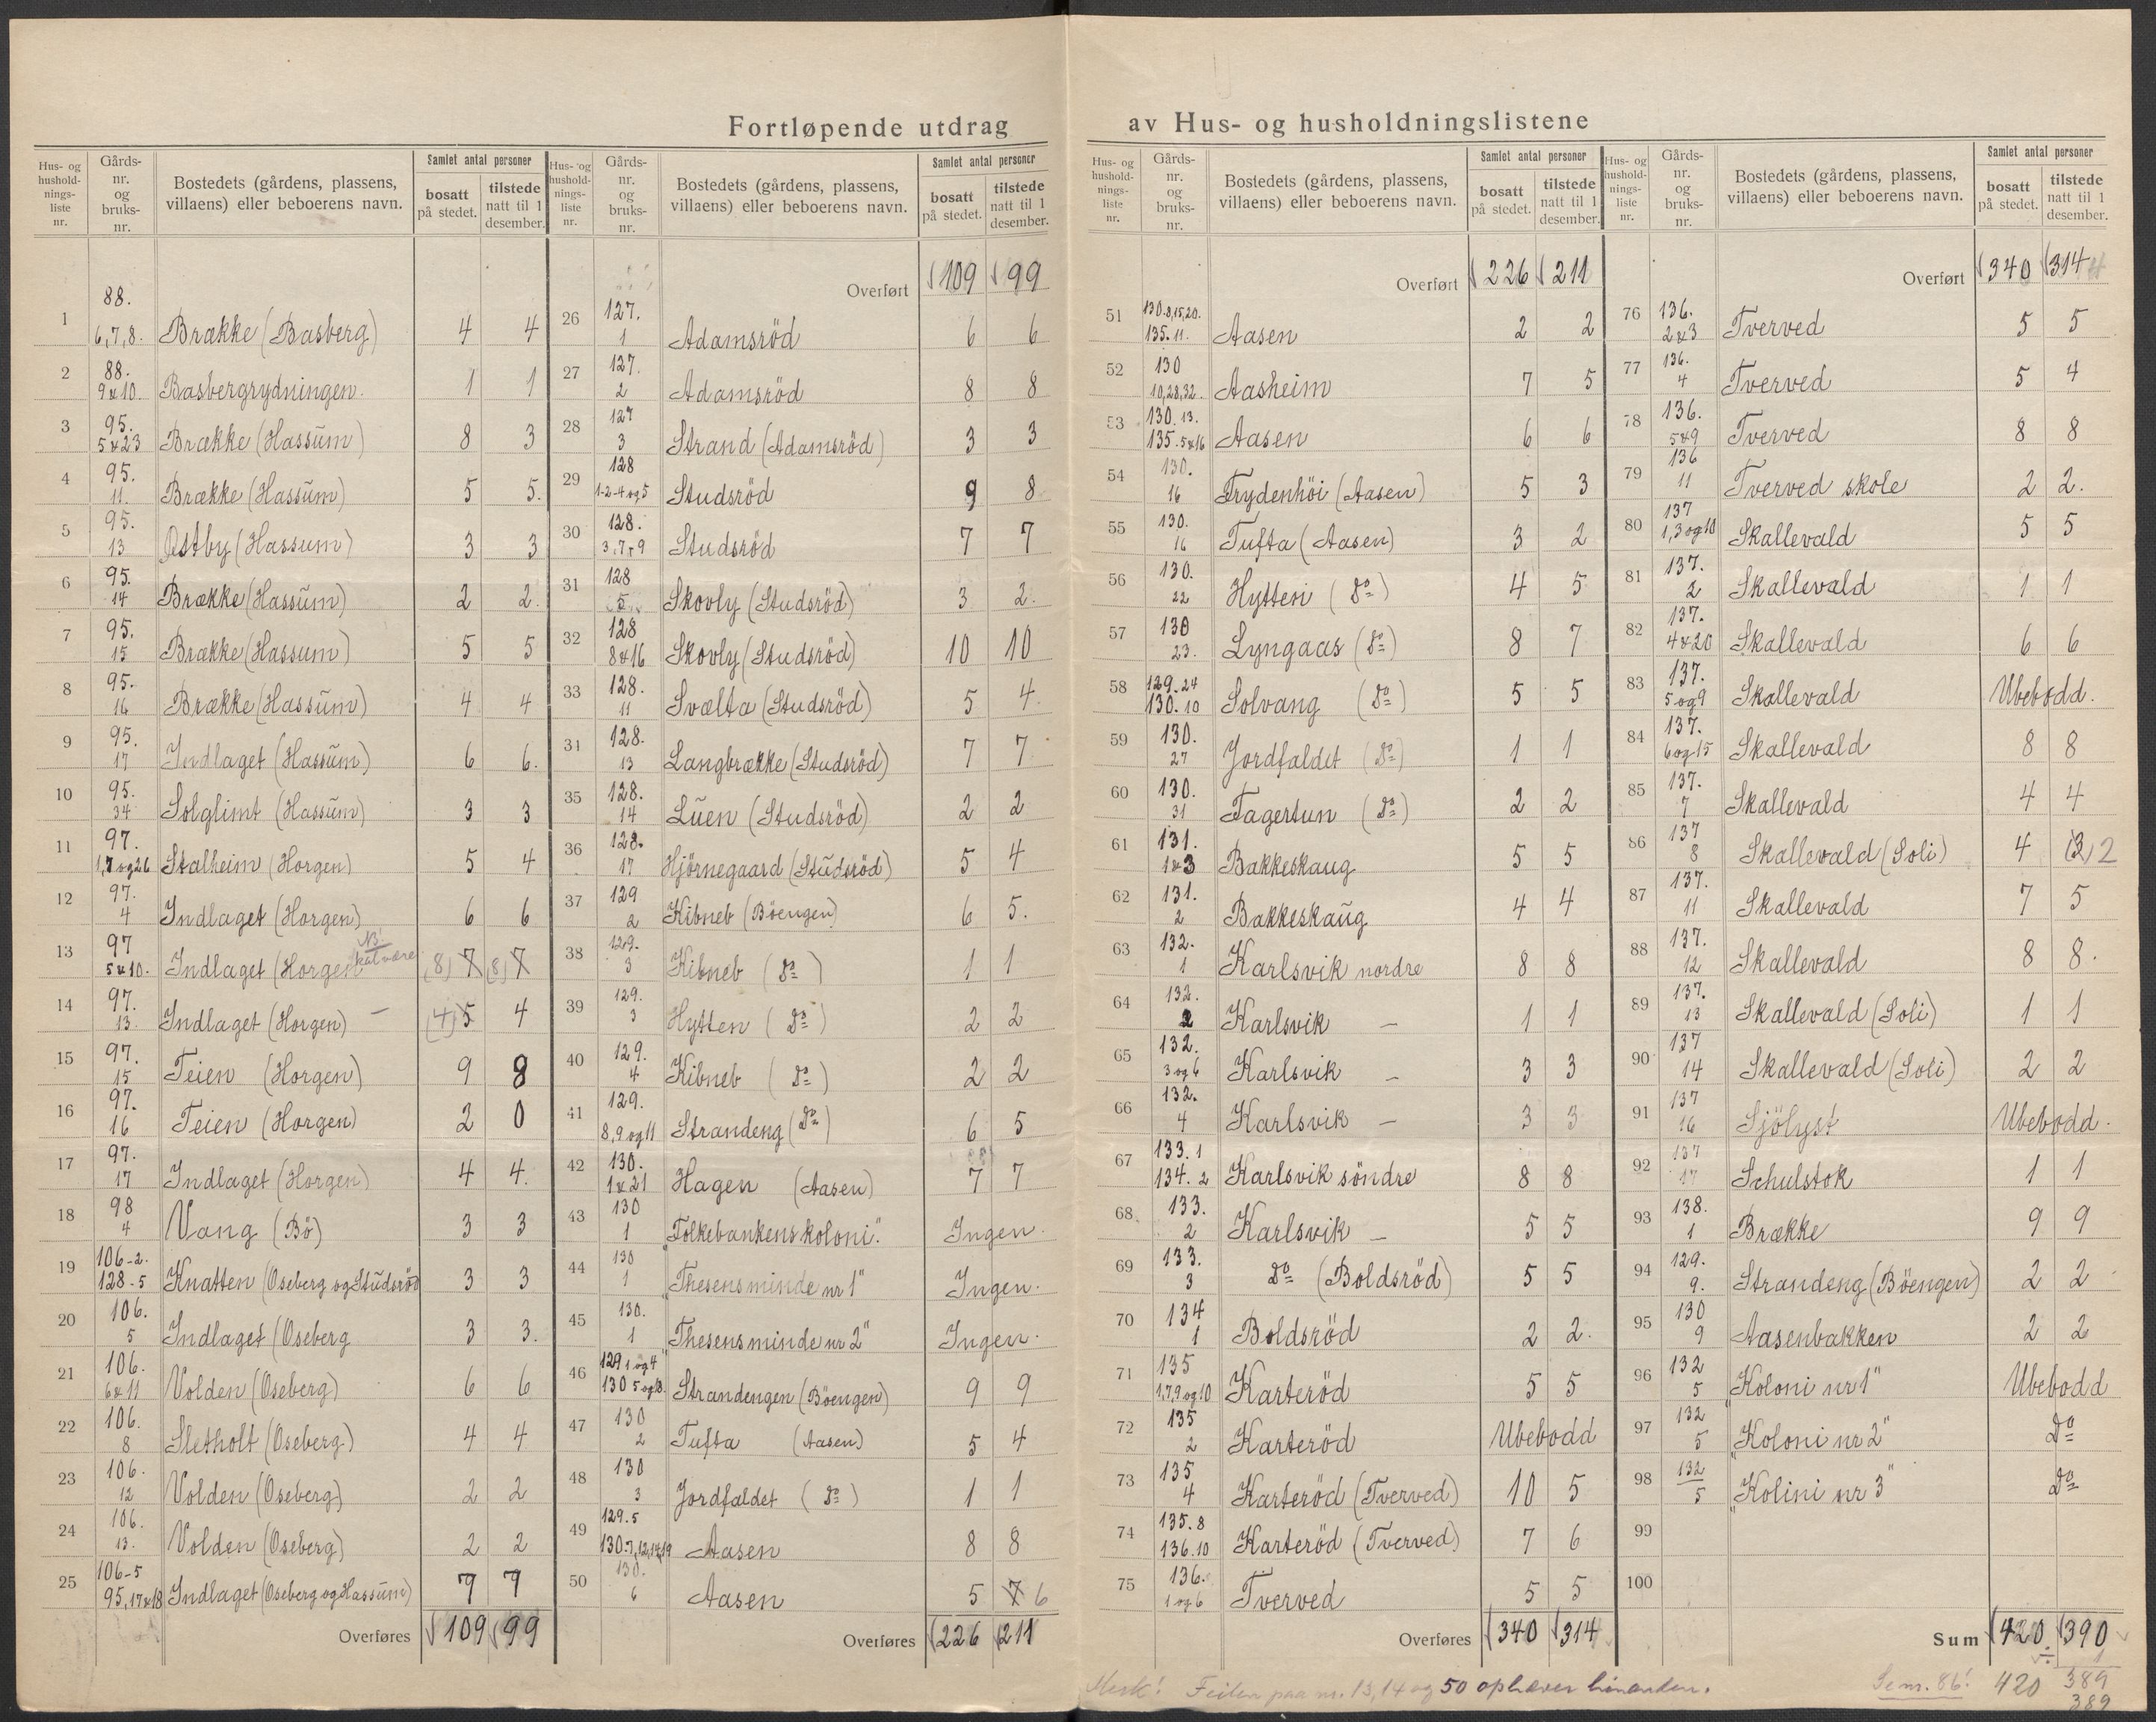 Fortløpende utdrag av Hus- og husholdningslistene
Hus- og husholdningsliste nr. | Gårds-nr. og bruks-nr. | Bostedets (gårdens, plassens, villaens) eller beboerens navn. | Samlet antal personer bosatt på stedet. | tilstede natt til 1 desember.
1 | 88. 6,7,8. | Brække (Basberg) | 4 | 4
2 | 88. 9&10. | Basbergrydningen. | 1 | 1
3 | 95. 5&23 | Brække (Hassum) | 8 | 3
4 | 95. 11. | Brække (Hassum) | 5 | 5.
5 | 95. 13 | Østby (Hassum) | 3 | 3
6 | 95. 14 | Brække (Hassum) | 2 | 2.
7 | 95. 15 | Brække (Hassum) | 5 | 5
8 | 95. 16 | Brække (Hassum) | 4 | 4
9 | 95. 17 | Indlaget (Hassum) | 6 | 6.
10 | 95. 34 | Solglimt (Hassum) | 3 | 3
11 | 97. 1,7 og 26 | Stalheim (Horgen) | 5 | 4
12 | 97. 4 | Indlaget (Horgen) | 6 | 6
13 | 97 5&10. | Indlaget (Horgen NB! skal være | (8) 7 | (8) 7
14 | 97. 13. | Indlaget (Horgen) — | (4) 5 | 4
15 | 97. 15 | Teien (Horgen) | 9 | 8
16 | 97. 16 | Teien (Horgen) | 2 | 0
17 | 97. 17 | Indlaget (Horgen) | 4 | 4.
18 | 98 4 | Vang (Bö) | 3 | 3
19 | 106-2. 128-5 | Knatten (Oseberg og Studsröd | 3 | 3
20 | 106. 5 | Indlaget (Oseberg | 3 | 3.
21 | 106. 6&11 | Volden (Oseberg) | 6 | 6
22 | 106. 8 | Sletholt (Oseberg) | 4 | 4
23 | 106. 12 | Volden (Oseberg) | 2 | 2
24 | 106. 13. | Volden (Oseberg) | 2 | 2
25 | 106-5 95,17&18 | Indlaget (Oseberg og Hassum) | 7 | 7
Overføres | 109 | 99
Hus- og husholdningsliste nr. | Gårds-nr. og bruks-nr. | Bostedets (gårdens, plassens, villaens) eller beboerens navn. | Samlet antal personer bosatt på stedet. | tilstede natt til 1 desember.
Overført | 109 | 99
26 | 127. 1 | Adamsröd | 6 | 6
27 | 127. 2 | Adamsröd | 8 | 8
28 | 127 3 | Strand (Adamsröd) | 3 | 3
29 | 128 1-2-4 og 5 | Studsröd | 9 | 8
30 | 128. 3,7,9 | Studsröd | 7 | 7
31 | 128 5 | Skovly (Studsröd) | 3 | 2.
32 | 128 8&16 | Skovly (Studsröd) | 10 | 10
33 | 128. 11 | Svælta (Studsröd) | 5 | 4.
34 | 128. 13 | Langbrække (Studsröd) | 7 | 7
35 | 128. 14 | Luen (Studsröd) | 2 | 2
36 | 128. 17 | Hjörnegaard (Studsröd) | 5 | 4
37 | 129 2 | Kibneb (Böengen) | 6 | 5.
38 | 129. 3 | Kibneb (Do) | 1 | 1
39 | 129. 3 | Hytten (Do) | 2 | 2
40 | 129. 4 | Kibneb (Do) | 2 | 2
41 | 129. 8,9 og 11 | Strandeng (Do) | 6 | 5
42 | 130. 1&21 | Hagen (Aasen) | 7 | 7
43 | 130 1 | Folkebankens koloni". | Ingen.
44 | 130 1 | "Thesens minde nr 1" | Ingen.
45 | 130. 1 | "Thesens minde nr 2" | Ingen.
46 | 129 1 og 4 130 5 og 18. | Strandengen (Böengen) | 9 | 9
47 | 130 2 | Tufta (Aasen) | 5 | 4
48 | 130 3 | Jordfaldet (Do) | 1 | 1
49 | 129.5 130.7,12,14,19 | Aasen | 8 | 8
50 | 130. 6 | Aasen | 5 | 7 6
Overføres | 226 | 211
Hus- og husholdningsliste nr. | Gårds-nr. og bruks-nr. | Bostedets (gårdens, plassens, villaens) eller beboerens navn. | Samlet antal personer bosatt på stedet. | tilstede natt til 1 desember.
Overført | 226 | 211
51 | 130.8,15,20. 135.11. | Aasen | 2 | 2
52 | 130 10,28,32. | Aasheim | 7 | 5
53 | 130.13. 135.5&16 | Aasen | 6 | 6
54 | 130. 16 | Frydenhöi (Aasen) | 5 | 3
55 | 130. 16 | Tufta (Aasen) | 3 | 2
56 | 130. 22 | Hytten (Do) | 4 | 5
57 | 130 23. | Lyngaas (Do) | 8 | 7
58 | 129.24 130.10 | Solvang (Do) | 5 | 5
59 | 130. 27 | Jordfaldet (Do) | 1 | 1
60 | 130. 31 | Fagertun (Do) | 2 | 2
61 | 131. 1&3 | Bakkeskaug | 5 | 5
62 | 131. 2 | Bakkeskaug | 4 | 4
63 | 132. 1 | Karlsvik nordre | 8 | 8
64 | 132. 2 | Karlsvik — | 1 | 1
65 | 132. 3 og 6 | Karlsvik — | 3 | 3
66 | 132. 4 | Karlsvik — | 3 | 3
67 | 133.1 134.2 | Karlsvik söndre | 8 | 8
68 | 133. 2 | Karlsvik — | 5 | 5
69 | 133. 3 | Do (Boldsröd) | 5 | 5
70 | 134 1 | Boldsröd | 2 | 2.
71 | 135 1,7,9 og 10 | Karteröd | 5 | 5
72 | 135 2 | Karteröd | Ubebodd
73 | 135 4 | Karteröd (Tverved) | 10 | 5
74 | 135.8 136.10 | Karteröd (Tverved) | 7 | 6
75 | 136. 1 og 6 | Tverved | 5 | 5
Overføres | 340 | 314
Hus- og husholdningsliste nr. | Gårds-nr. og bruks-nr. | Bostedets (gårdens, plassens, villaens) eller beboerens navn. | Samlet antal personer bosatt på stedet. | tilstede natt til 1 desember.
Overført | 340 | 314
76 | 136. 2&3 | Tverved | 5 | 5
77 | 136. 4 | Tverved | 5 | 4
78 | 136. 5&9 | Tverved | 8 | 8
79 | 136 11 | Tverved skole | 2 | 2.
80 | 137 1,3 og 10 | Skallevald | 5 | 5
81 | 137. 2 | Skallevald | 1 | 1
82 | 137. 4&20 | Skallevald | 6 | 6
83 | 137. 5 og 9 | Skallevald | Ubebodd.
84 | 137. 6 og 15 | Skallevald | 8 | 8
85 | 137. 7 | Skallevald | 4 | 4
86 | 137 8 | Skallevald (Soli) | 4 | (3) 2
87 | 137. 11 | Skallevald | 7 | 5
88 | 137. 12 | Skallevald | 8 | 8.
89 | 137. 13 | Skallevald (Soli) | 1 | 1
90 | 137 14 | Skallevald (Soli) | 2 | 2
91 | 137 16 | Sjölyst | Ubebodd.
92 | 137 17 | Schulstok | 1 | 1
93 | 138. 1 | Brække | 9 | 9
94 | 129. 9. | Strandeng (Böengen) | 2 | 2
95 | 130 9 | Aasenbakken | 2 | 2
96 | 132 5 | "Koloni nr 1" | Ubebodd
97 | 132 5 | "Koloni nr 2" | Do
98 | 132 5 | "Kolini nr 3" | Do
99
100
Sum | 420 | 390
1
Merk! Feilen paa nr. 13, 14 og 50 ophæver hinanden.
Se nr. 86! 420 389
389